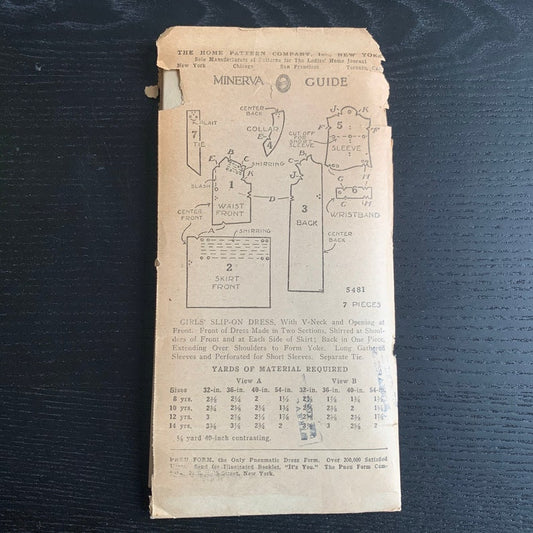 THE HOME PATTERN COMPANY, Inc., NEW YORK
Sole Manufacturers of Patterns for The Ladies' Home Journal
New York Chicago San Francisco Toronto,
MINERVA GUIDE
7
PLAIT
TIE
CENTER BACK
COLLAR
4
CUT OFF FOR SHORT SLEEVE
J K
F F
5
SLEEVE
H
B
E C
SHIRRING
K
SLASH
1
WAIST FRONT
CENTER FRONT
A
D
B
C
J
3
BACK
G H
6
G H
WRISTBAND
CENTER BACK
SHIRRING
2
SKIRT FRONT
5481
7 PIECES
GIRLS' SLIP-ON DRESS, With V-Neck and Opening at
Front. Front of Dress Made in Two Sections, Shirred at Shoul-
ders of Front and at Each Side of Skirt; Back in One Piece,
Extending Over Shoulders to Form Yoke. Long Gathered
Sleeves and Perforated for Short Sleeves. Separate Tie.
YARDS OF MATERIAL REQUIRED
View A View B
Sizes 32-in. 36-in. 40-in. 54-in. 32-in. 36-in. 40-in. 54-
8 yrs. 2
10 yrs. 2
12 yrs. 3
14 yrs.
yard 40-inch contrasting.
PNEU FORM, the Only Pneumatic Dress Form. Over 200,000 Satisfied
Send for Illustrated Booklet, "It's You." The Pneu Form Com-
Street, New York.